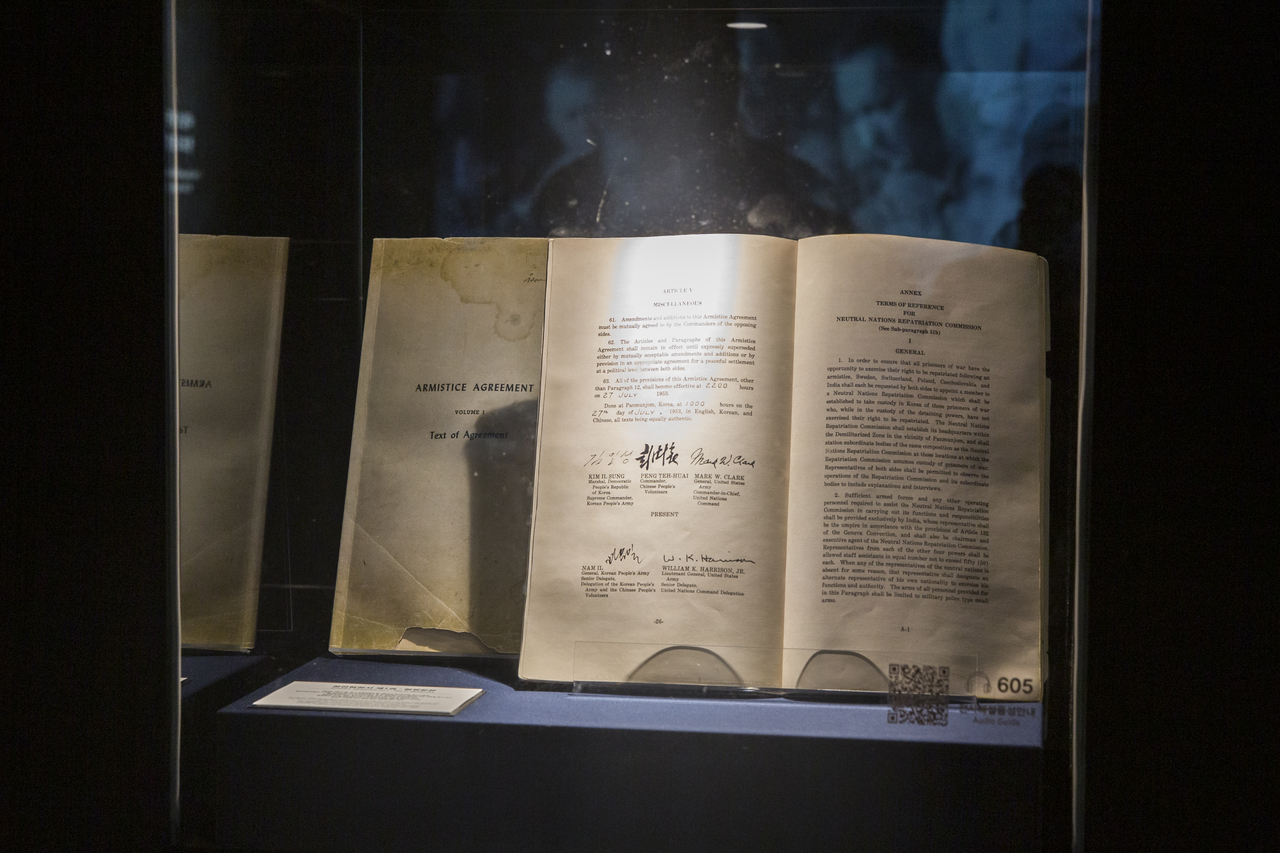 ARMISTICE AGREEMENT
VOLUME I
Text of Agreement
ARTICLE V
MISCELLANEOUS
61. Amendments and additions to this Armistice Agreement
must be mutually agreed to by the Commanders of the opposing
sides.
62. The Articles and Paragraphs of this Armistice
Agreement shall remain in effect until expressly superseded
either by mutually acceptable amendments and additions or by
provision in an appropriate agreement for a peaceful settlement
at a political level between both sides.
63. All of the provisions of this Armistice Agreement, other
than Paragraph 12, shall become effective at 2200 hours
on 27 JULY 1953.
Done at Panmunjom, Korea, at 1000 hours on the
27th day of JULY, 1953, in English, Korean, and
Chinese, all texts being equally authentic.
김일성 彭德懷 Mark W. Clark
KIM IL SUNG PENG TEH-HUAI MARK W. CLARK
Marshal, Democratic Commander, General, United States
People's Republic Chinese People's Army
of Korea Volunteers Commander-in-Chief,
Supreme Commander, United Nations
Korean People's Army Command
PRESENT
W. K. Harrison
NAM IL WILLIAM K. HARRISON, JR.
General, Korean People's Army Lieutenant General, United States
Senior Delegate, Army
Delegation of the Korean People's Senior Delegate,
Army and the Chinese People's United Nations Command Delegation
Volunteers
ANNEX
TERMS OF REFERENCE
FOR
NEUTRAL NATIONS REPATRIATION COMMISSION
(See Sub-paragraph 51b)
I
GENERAL
1. In order to ensure that all prisoners of war have the
opportunity to exercise their right to be repatriated following an
armistice, Sweden, Switzerland, Poland, Czechoslovakia, and
India shall each be requested by both sides to appoint a member to
a Neutral Nations Repatriation Commission which shall be
established to take custody in Korea of those prisoners of war
who, while in the custody of the detaining powers, have not
exercised their right to be repatriated. The Neutral Nations
Repatriation Commission shall establish its headquarters within
the Demilitarized Zone in the vicinity of Panmunjom, and shall
station subordinate bodies of the same composition as the Neutral
Nations Repatriation Commission at those locations at which the
Repatriation Commission assumes custody of prisoners of war.
Representatives of both sides shall be permitted to observe the
operations of the Repatriation Commission and its subordinate
bodies to include explanations and interviews.
2. Sufficient armed forces and any other operating
personnel required to assist the Neutral Nations Repatriation
Commission in carrying out its functions and responsibilities
shall be provided exclusively by India, whose representative shall
be the umpire in accordance with the provisions of Article 132
of the Geneva Convention, and shall also be chairman and
executive agent of the Neutral Nations Repatriation Commission.
Representatives from each of the other four powers shall be
allowed staff assistants in equal number not to exceed fifty (50)
each. When any of the representatives of the neutral nations is
absent for some reason, that representative shall designate an
alternate representative of his own nationality to exercise his
functions and authority. The arms of all personnel provided for
in this Paragraph shall be limited to military police type small
arms.
A-1
605
Audio Guide